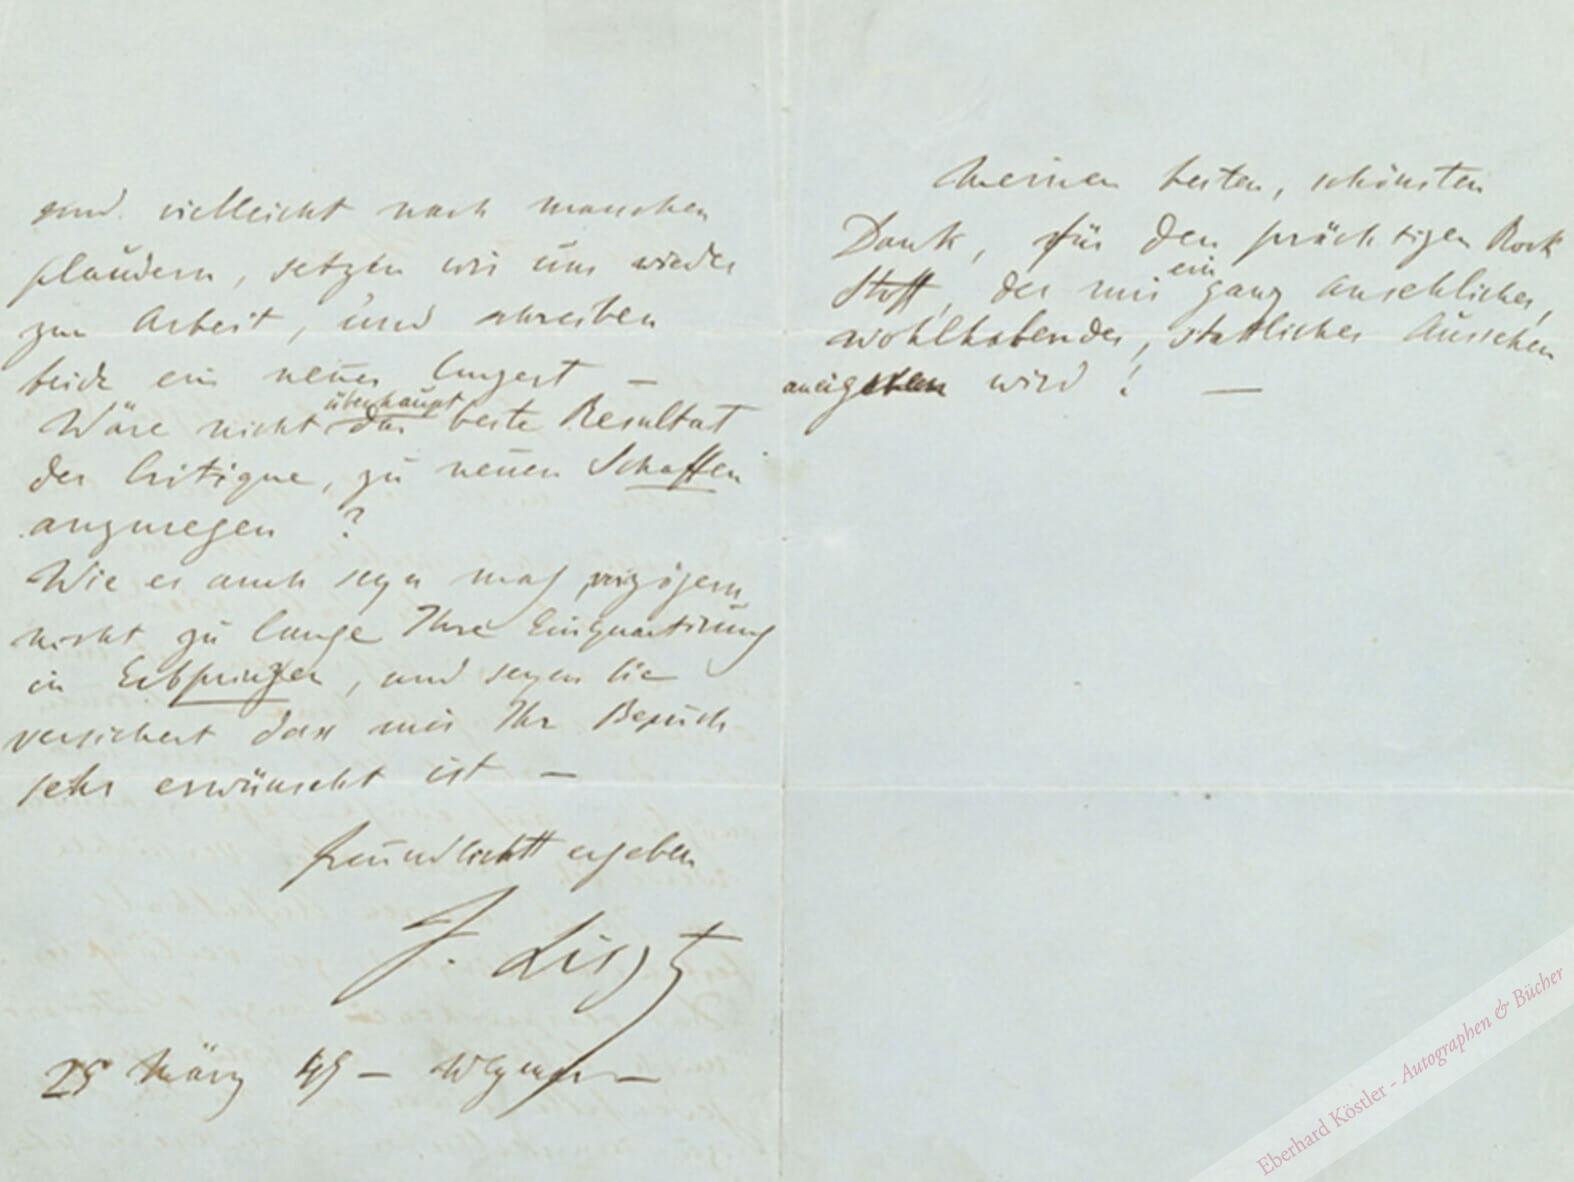 und vielleicht nach manchen
plaudern, setzen wir uns wieder
zur Arbeit, und schreiben
beide ein neues Conzert –
Wäre nicht überhaupt das beste Resultat
der Critique, zu neuen Schaffen
anzuregen ?
Wie es auch seyn mag verzögern
nicht zu lange Ihre Einquartirung
in Erbprinzen, und seyen Sie
versichert dass mir Ihr Besuch
sehr erwünscht ist –
freundlichst ergeben
F. Liszt
25 März 49 – Weymar –
Meinen besten, schönsten
Dank, für den prächtigen Rock
Stoff, der mir ein ganz ansehliches,
wohlhabendes, stattliches Aussehen
wird ! –
Eberhard Köstler - Autographen & Bücher